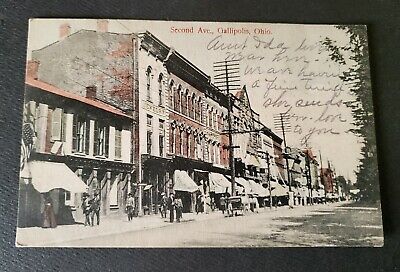 Second Ave., Gallipolis, Ohio.
Aunt Ida
We are having
a fine time
She sends
love
to you